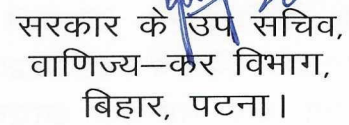 सरकार के उप सचिव,
वाणिज्य–कर विभाग,
बिहार, पटना।